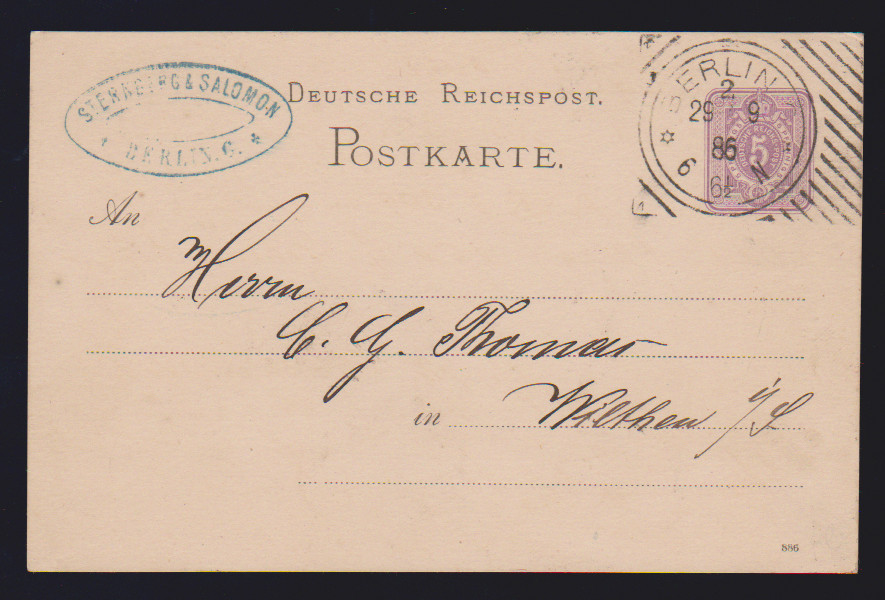 STERNBERG & SALOMON
BERLIN. C.
DEUTSCHE REICHSPOST.
POSTKARTE.
BERLIN
2
29 9
86
6 6½ N
5
An
Herrn
C. G. Thomas
in Wilthen i/S
886